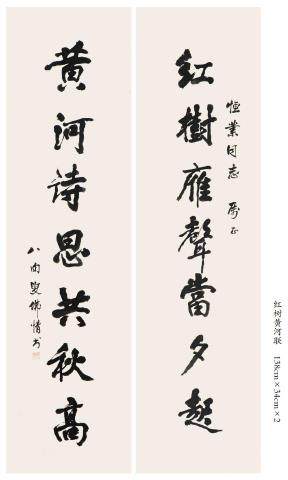 恒業同志 属正
紅樹雁聲當夕起
黄河诗思共秋高
红树黄河联 138cm×34cm×2